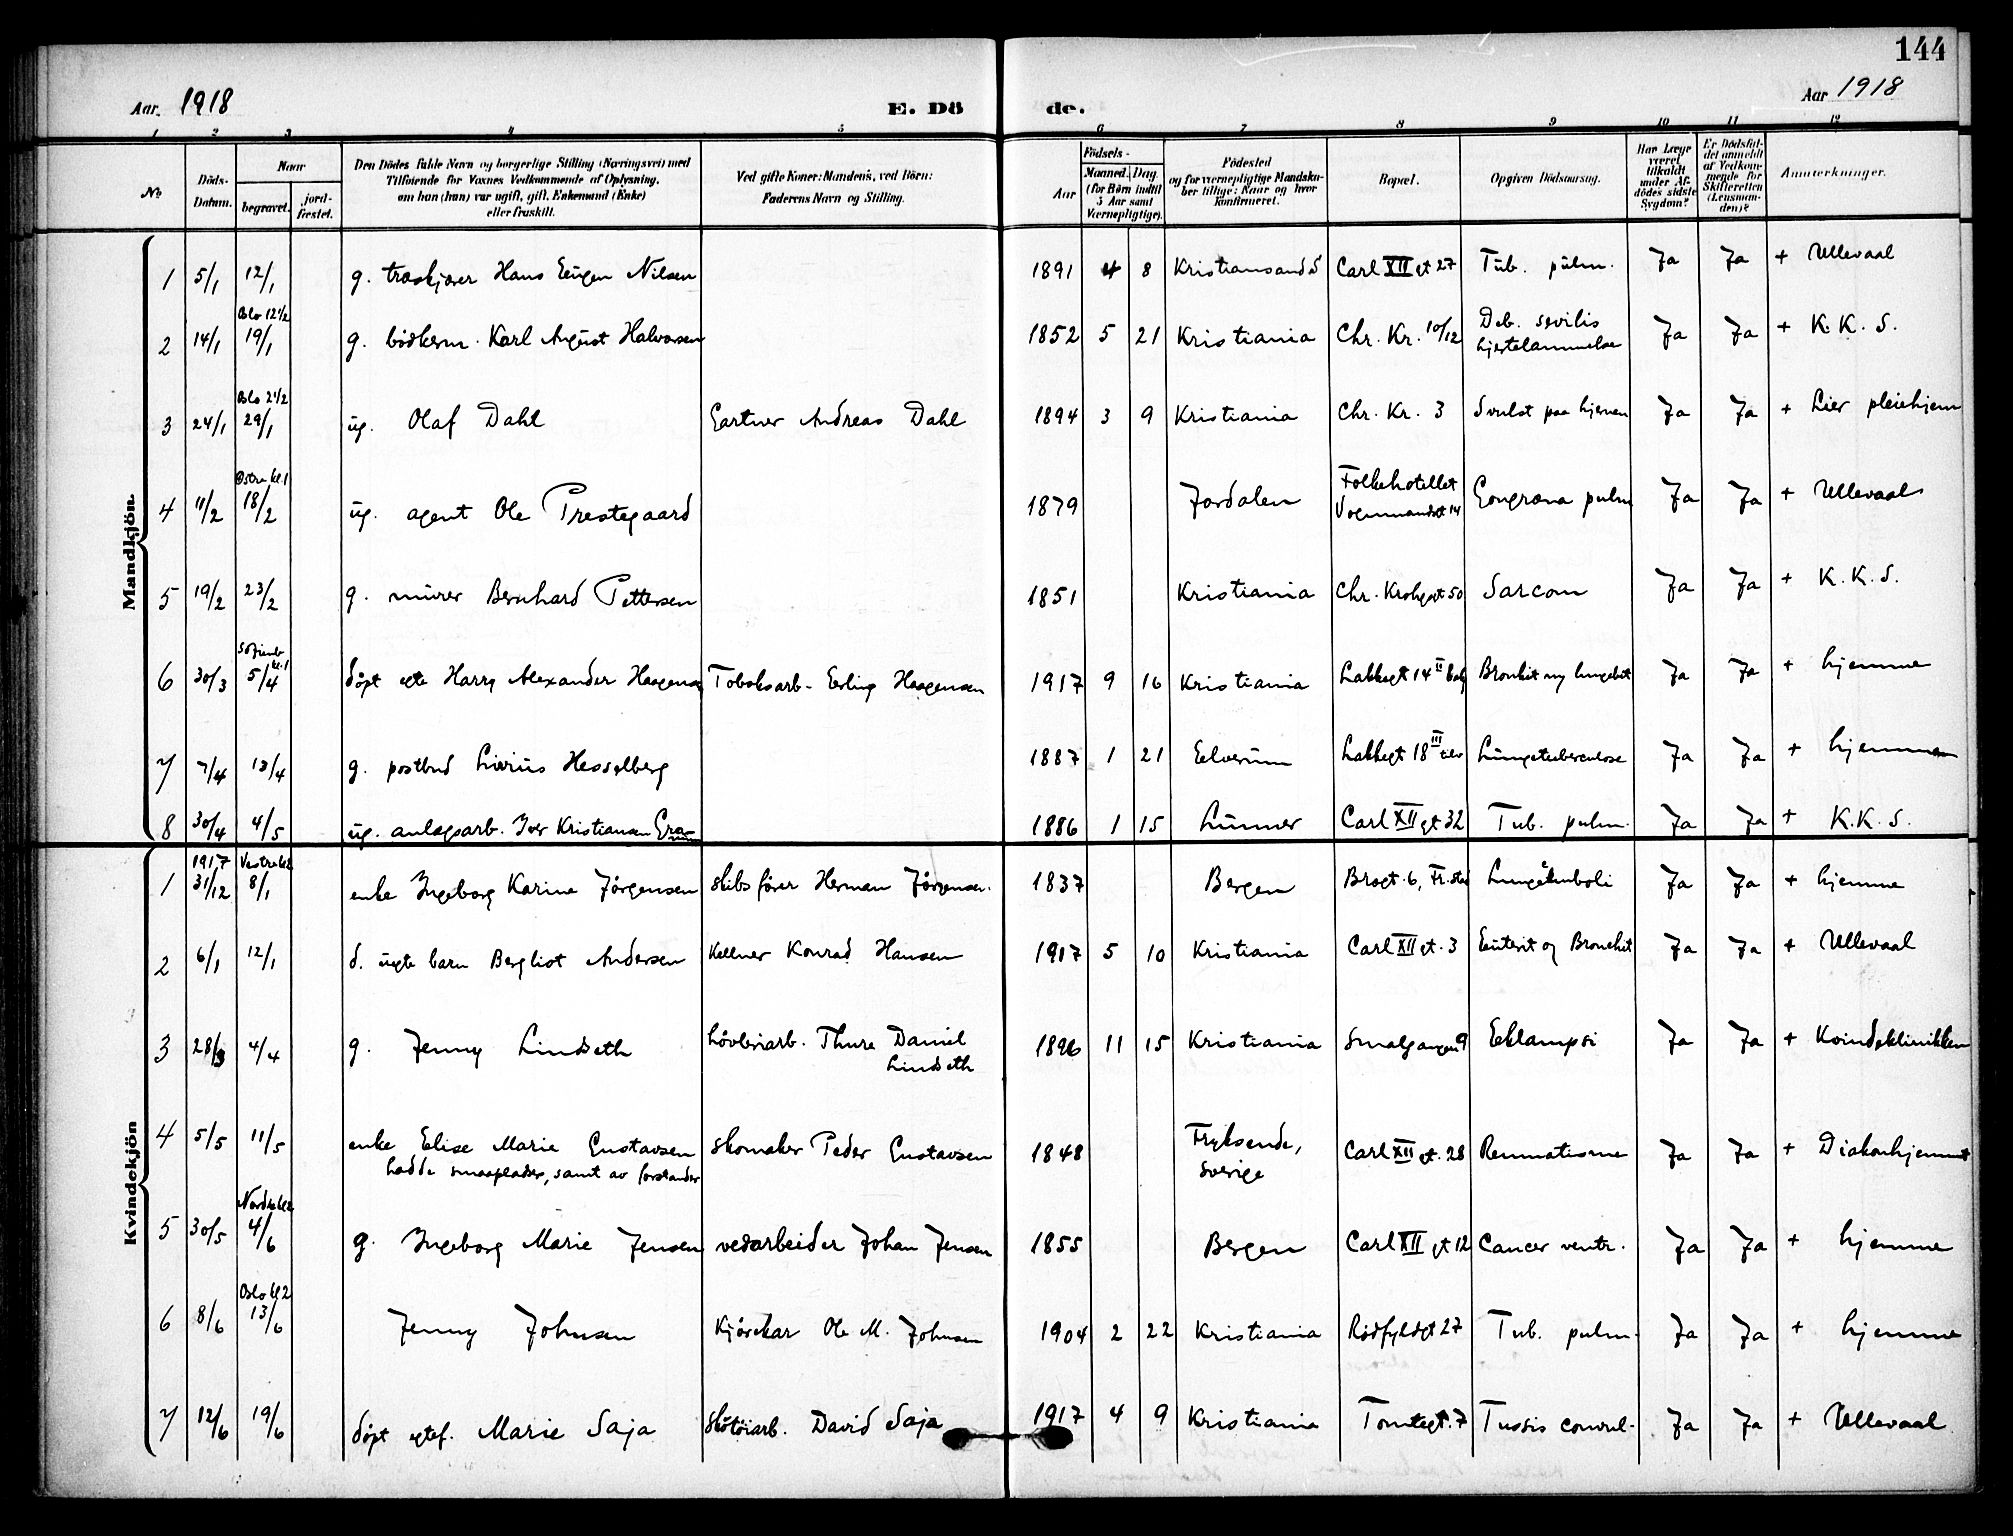 144
Aar. 1918
E. Dö
de.
Aar 1918
1 2 3 4 5 6 7 8 9 10 11 12
No
Döds-Datum.
Naar
begravet.
jord-fæstet.
Den Dödes fulde Navn og borgerlige Stilling (Næringsvei) med
Tilföiende for Voxnes Vedkommende af Oplysning,
om han (hun) var ugift, gift, Enkemand (Enke)
eller fraskilt.
Ved gifte Koner: Mandens, ved Börn:
Faderens Navn og Stilling.
Aar
Födsels-
Maaned. Dag
(for Börn indtil
5 Aar samt
Værnepligtige).
Födested
og for værnepligtige Mandska-
ber tillige: Naar og hvor
konfirmeret.
Bopæl.
Opgiven Dödsaarsag.
Har Læge
været
tilkaldt
under Af-
dödes sidste
Sygdom?
Er Dödsfal-
det anmeldt
af Vedkom-
mende for
Skifteretten
(Lensman-
den)?
Anmerkninger.
Mandkjön
1 5/1 12/1 g. traskjører Hans Eugen Nilsen 1891 4 8 Kristianssand S Carl XII gt 27 Tub. pulm. Ja Ja + Ullevaal
Oslo 12 1/2
2 14/1 19/1 g. bødkerm. Karl August Halvorsen 1852 5 21 Kristiania Chr. Kr. 10/12 Deb. sevilis Ja Ja + K. K. S.
hjertelammelse
Oslo 2 1/2
3 24/1 29/1 ug. Olaf Dahl Gartner Andreas Dahl 1894 3 9 Kristiania Chr. Kr. 3 Svulst paa hjernen Ja Ja + Lier pleiehjem
Østre kl. 1
4 11/2 18/2 ug. agent Ole Prestegaard 1879 Jordalen Folkehotellet Gongræna pulm Ja Ja + Ullevaal
Vognmandsgt 14
5 19/2 23/2 g. murer Bernhard Pettersen 1851 Kristiania Chr. Krohgsgt 50 Sarcom Ja Ja + K. K. S.
Sofienb kl. 1
6 30/3 5/4 döpt egte Harry Alexander Haagensen Tobaksarb. Erling Haagensen 1917 9 16 Kristiania Lakkegt 14 II Bronkit og lungebet Ja Ja + hjemme
7 7/4 13/4 g. postbud Livius Hesselberg 1887 1 21 Elverum Lakkegt 18 III Lungetuberculose Ja Ja + hjemme
8 30/4 4/5 ug. anlægsarb. Iver Kristiansen 1886 1 15 Lunner Carl XII gt 32 Tub. pulm. Ja Ja + K. K. S.
Kvindekjön
1917 Vestre kl 2
1 31/12 8/1 enke Ingeborg Karine Jörgensen skibsförer Herman Jörgensen. 1837 Bergen Brogt. 6, Fr.stad Lungeemboli Ja Ja + hjemme
2 6/1 12/1 d. uegte barn Bergliot Andersen Kellner Konrad Hansen 1917 5 10 Kristiania Carl XII gt. 3 Enterit og Bronchit Ja Ja + Ullevaal
3 28/3 4/4 g. Jenny Lindseth hövleriarb. Thure Daniel 1896 11 15 Kristiania Smalgangen 9 Eklampsi Ja Ja + Kvindeklinikken
Lindseth
4 5/5 11/5 enke Elise Marie Gustavsen skomaker Peder Gustavsen 1848 Fryksende, Carl XII gt. 28 Reumatisme Ja Ja + Diakonhjemmet
hadde smaaplader, samt av forstander Sverige
Nordre kl 2
5 30/5 4/6 g. Ingeborg Marie Jensen vedarbeider Johan Jensen 1855 Bergen Carl XII gt 12 Cancer ventr. Ja Ja + hjemme
Oslo kl 2
6 8/6 13/6 Jenny Johnsen Kjörekar Ole M. Johnsen 1904 2 22 Kristiania Rödfyldgt 27 Tub. pulm. Ja Ja + hjemme
7 12/6 19/6 döpt egtef. Marie Saja skötöiarb. David Saja 1917 4 9 Kristiania Tomtegt. 7 Tussis convul. Ja Ja + Ullevaal